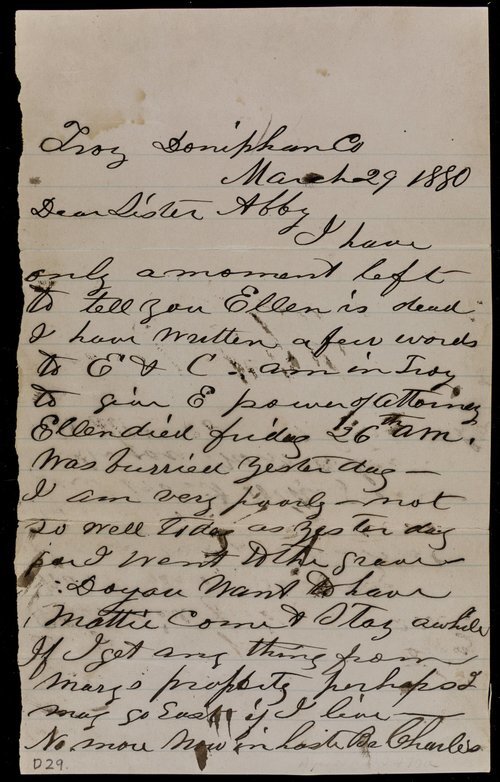 Troy Doniphan Co
March 29 1880
Dear Sister Abby
I have
only a moment left
to tell you Ellen is dead
I have written a few words
to E & C - am in Troy
to give E power of attorney
Ellen died friday 26th am.
Was burried yesterday -
I am very poorly - not
so well today as yesterday
for I went to the grave -
Do you want to have
Mattie Come & Stay awhile
If I get any thing from
Marys property perhaps I
may go East if I live -
No more now in haste Br Charles
D29.